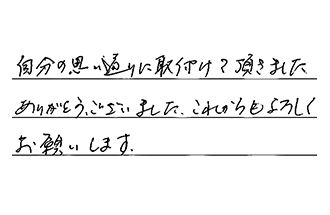 自分の思い通りに取付けて頂きました
ありがとうございました、これからもよろしく
お願いします。